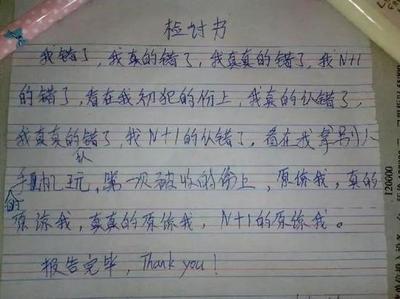 检讨书
我错了，我真的错了，我真真的错了，我N+1
的错了，看在我初犯的份上，我真的认错了，
我真真的错了，我N+1的认错了，看在我拿别人
手机玩，第一次被收的份上，原谅我，真的
原谅我，真真的原谅我，N+1的原谅我。
报告完毕，Thank you！
120600